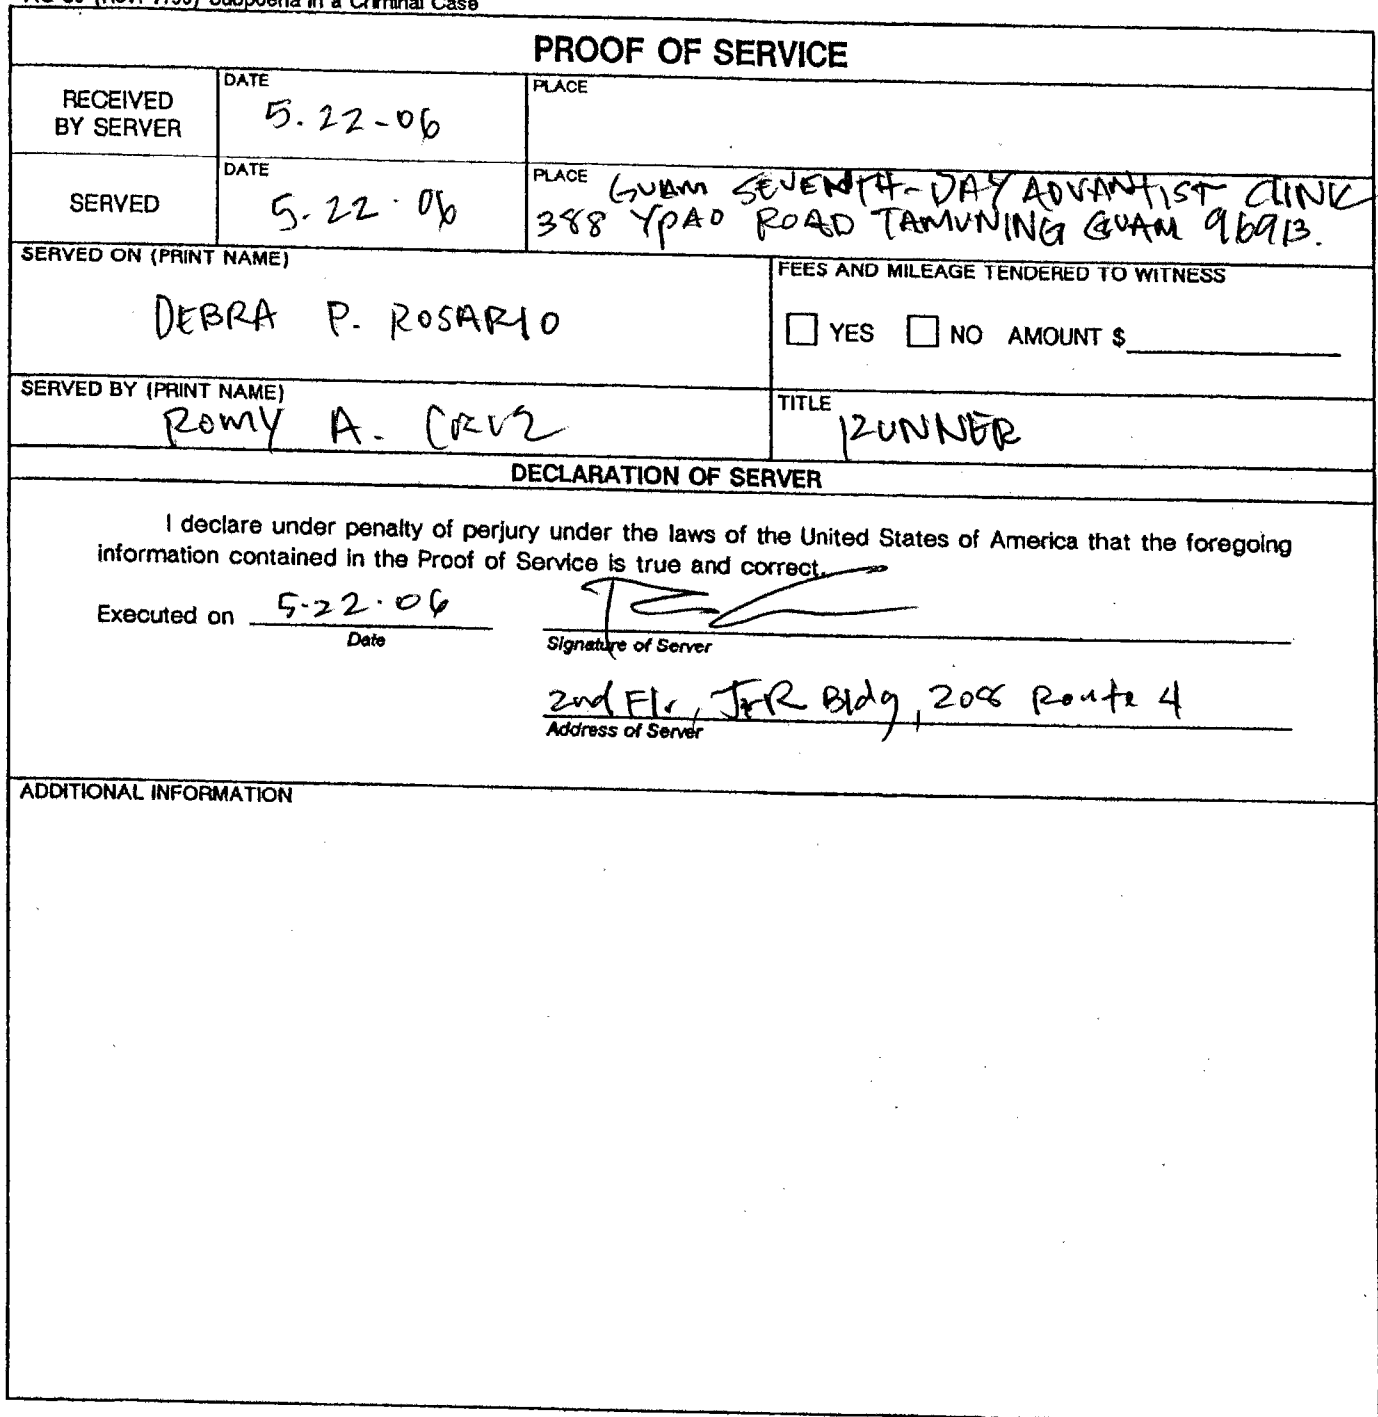 Subpoena in a Criminal Case
PROOF OF SERVICE
RECEIVED
BY SERVER
DATE
5.22-06
PLACE
SERVED
DATE
5.22.06
PLACE GUAM SEVENTH-DAY ADVANTIST CLINIC
388 YPAO ROAD TAMUNING GUAM 96913.
SERVED ON (PRINT NAME)
DEBRA P. ROSARIO
FEES AND MILEAGE TENDERED TO WITNESS
YES NO AMOUNT $
SERVED BY (PRINT NAME)
ROMY A. CRUZ
TITLE
RUNNER
DECLARATION OF SERVER
I declare under penalty of perjury under the laws of the United States of America that the foregoing
information contained in the Proof of Service is true and correct.
Executed on 5.22.06
Date
Signature of Server
2nd Flr, J&R Bldg, 208 Route 4
Address of Server
ADDITIONAL INFORMATION